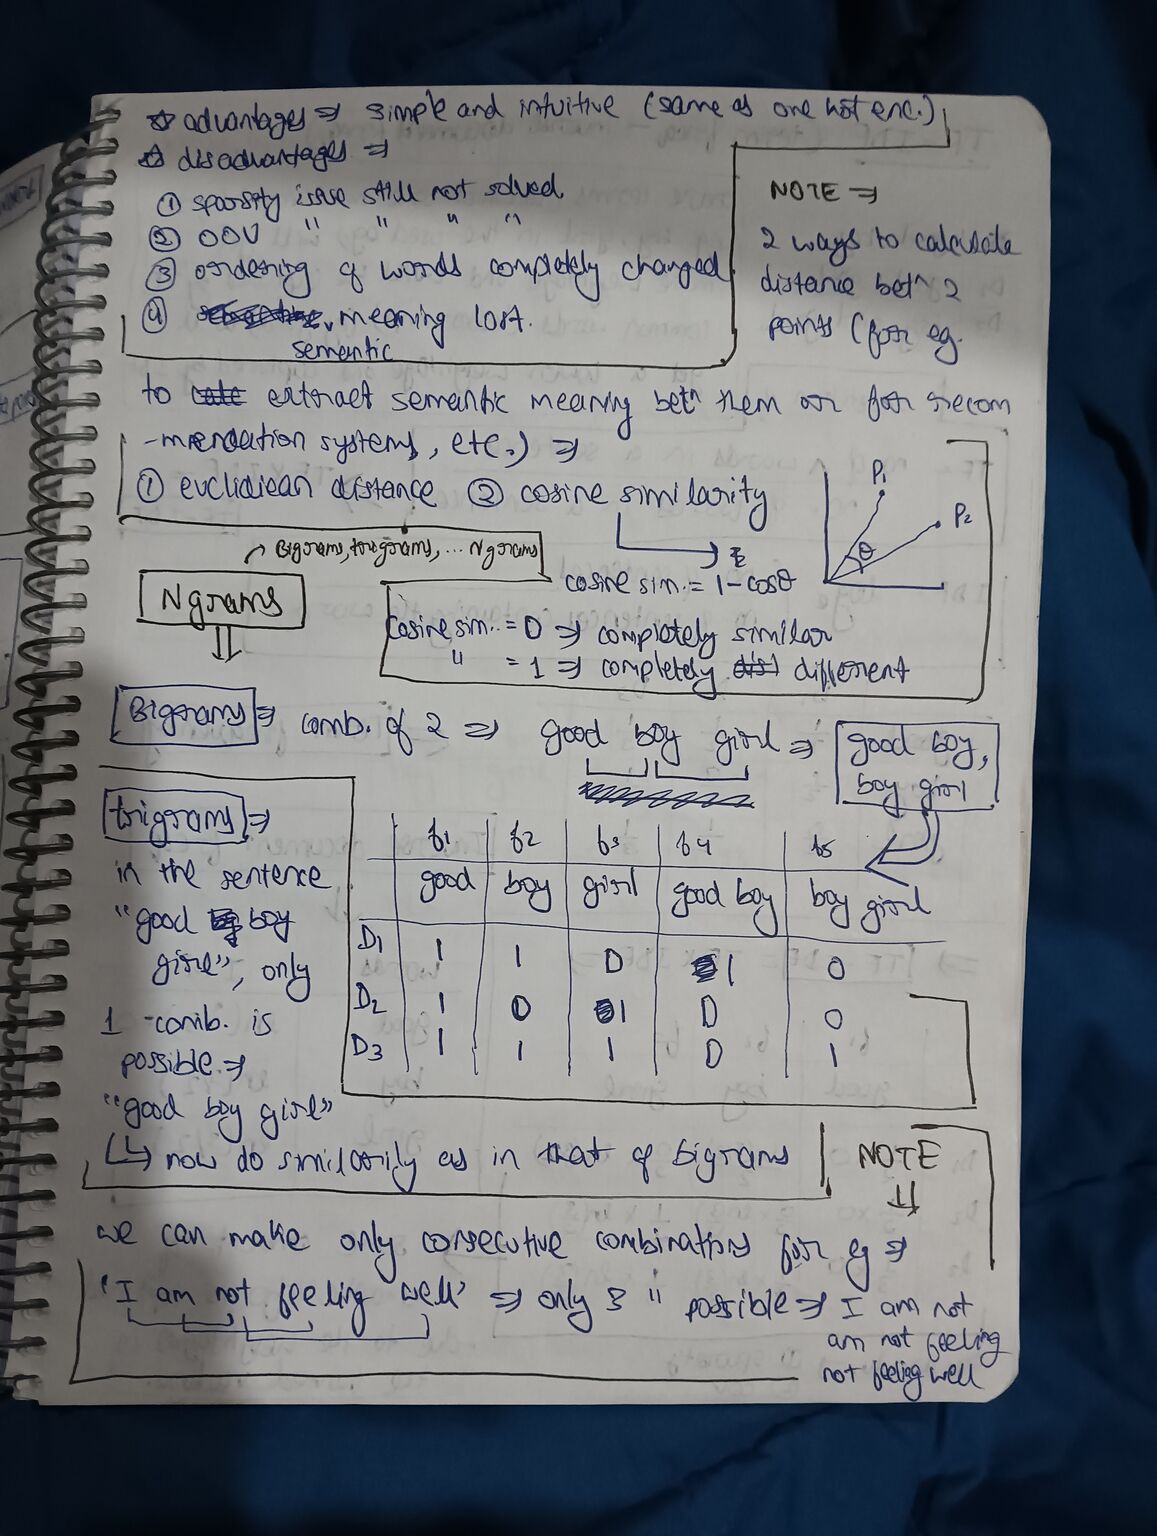 ☆ advantages ⇒ simple and intuitive (same as one hot enc.)
☆ disadvantages ⇒
① sparsity issue still not solved
② OOV " " " "
③ ordering of words completely changed
④ meaning lost.
semantic
NOTE ⇒
2 ways to calculate
distance betⁿ 2
points (for eg.
to extract semantic meaning betⁿ them or for recom
-mendation systems, etc.) ⇒
① euclidiean distance ② cosine similarity
P1
P2
θ
cosine sim. = 1 - cosθ
cosine sim. = 0 ⇒ completely similar
" = 1 ⇒ completely different
Bigrams, trigrams, ... Ngrams
Ngrams
⇓
Bigrams ⇒ comb. of 2 ⇒ good boy girl ⇒ good boy,
boy girl
trigrams ⇒
in the sentence
"good boy
girl", only
1 -comb. is
possible ⇒
"good boy girl"
↳ now do similarily as in that of bigrams
f1 f2 f3 f4 f5
good boy girl good boy boy girl
D1 1 1 0 1 0
D2 1 0 1 0 0
D3 1 1 1 0 1
NOTE
⇓
we can make only consecutive combinations for eg ⇒
'I am not feeling well' ⇒ only 3 " possible ⇒ I am not
am not feeling
not feeling well